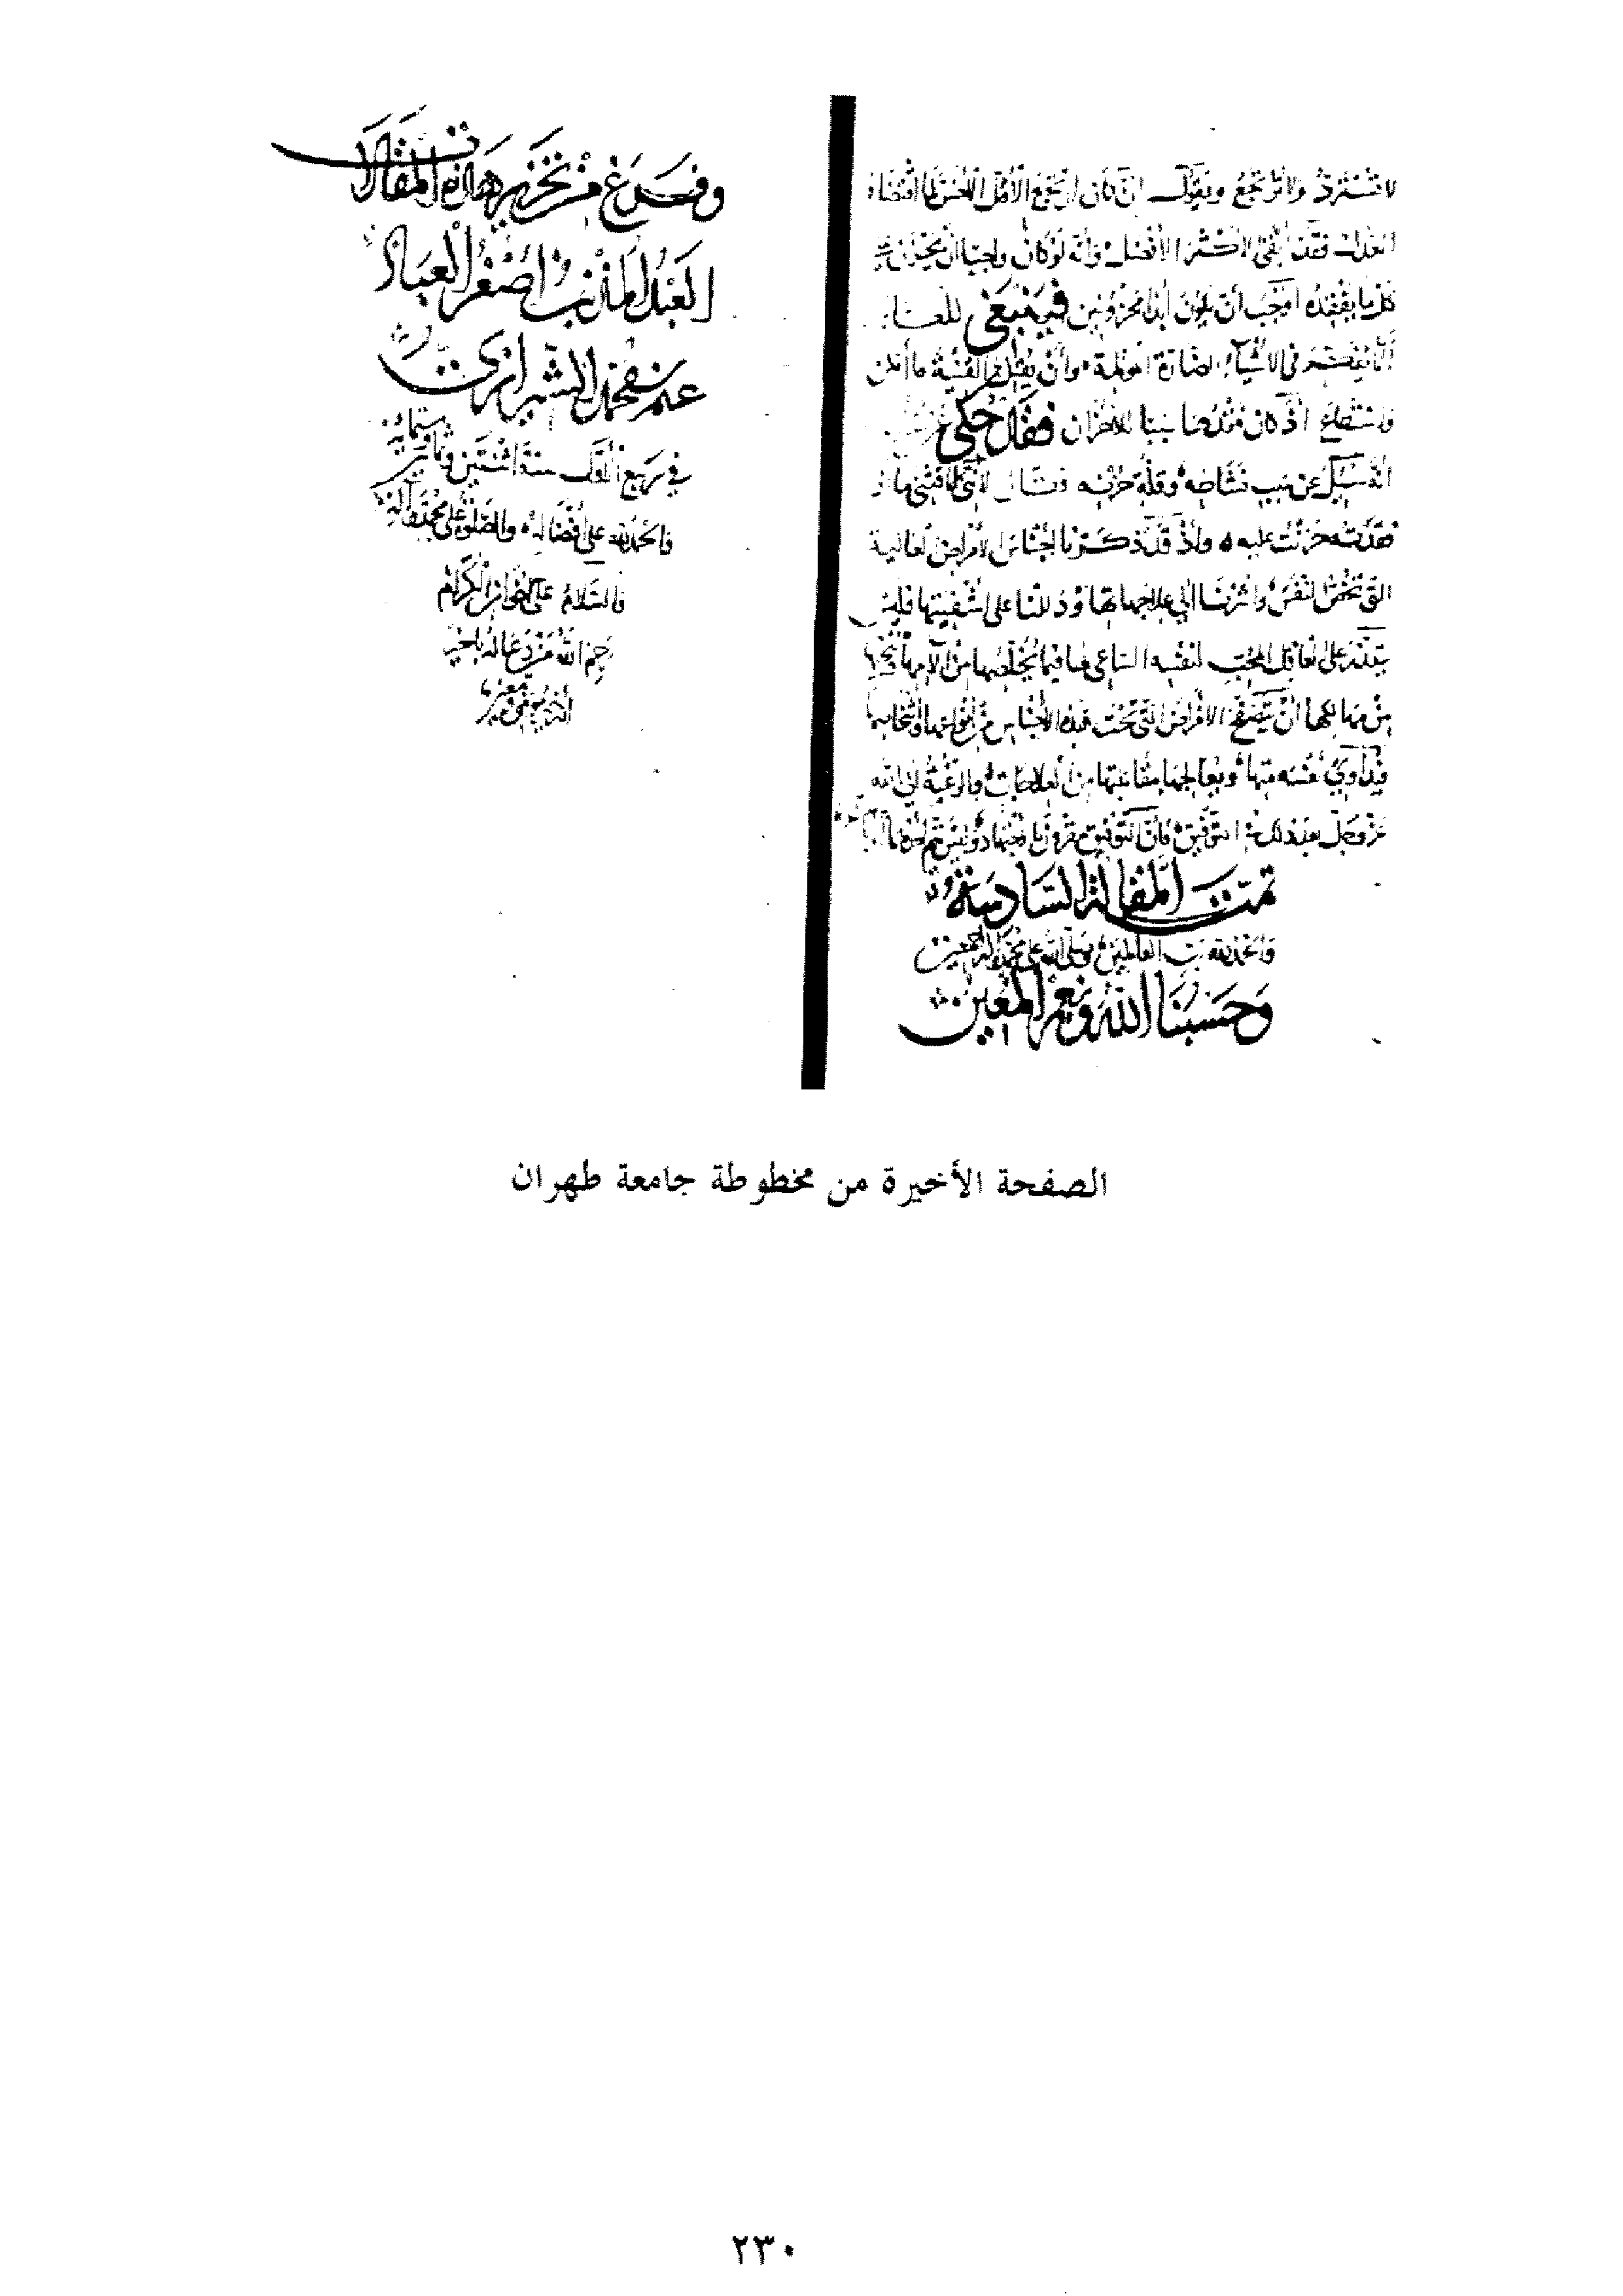 لا تسترد ولا ترتجع ويقول ان كان ارتجع الأقل الأخس كما اقتضاه
العدل فقد ابقى الأكثر الأفضل وانه لو كان واجبا ان نحزن على
كل ما نفقده لوجب أن نكون أبدا محزونين فينبغي للعاقل
ألا يفكر في الأشياء الضارة المؤلمة وأن يقلل القنية ما أمكن
واستطاع اذ كان فقدها سببا للأحزان فقد حكي عن
أنه سئل عن سبب نشاطه وقلة حزنه فقال لأنني لا أقتني ما اذا
فقدته حزنت عليه واذ قد ذكرنا أجناس الأمراض الغالبة
التي تخص النفس وأشرنا الى علاجاتها ودللنا على أشفيتها فليس
يتعذر على العاقل المحب لنفسه الساعي لها فيما يخلصها من آلامها وينجيها
من مهالكها ان يتصفح الامراض التي تحت هذه الأجناس من أنواعها وأشخاصها
فيداوي نفسه منها ويعالجها بمقابلتها من العلاجات والرغبة الى الله
عز وجل بعد ذلك في التوفيق فان التوفيق مقرون بالاجتهاد وليس يتم أحدهما الا بالآخر
تمت المقالة السادسة
والحمد لله رب العالمين وصلى الله على محمد وآله اجمعين
وحسبنا الله ونعم المعين
وفرغ من تحرير هذه المقالات
العبد المذنب أصغر العباد
علي بن محمد الشيرازي
في ربيع الأول سنة اثنتين وستمائة
والحمد لله على أفضاله والصلوة على محمد وآله
والسلام على اخوانه الكرام
رحم الله من دعا له بالخير
الصفحة الأخيرة من مخطوطة جامعة طهران
٢٣٠